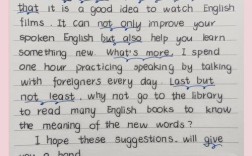 that it is a good idea to watch English
films. It can not only improve your
spoken English but also help you learn
something new. What's more, I spend
one hour practicing speaking by talking
with foreigners every day. Last but
not least, why not go to the library
to read many English books to know
the meaning of the new words?
I hope these suggestions will give
you a hand.